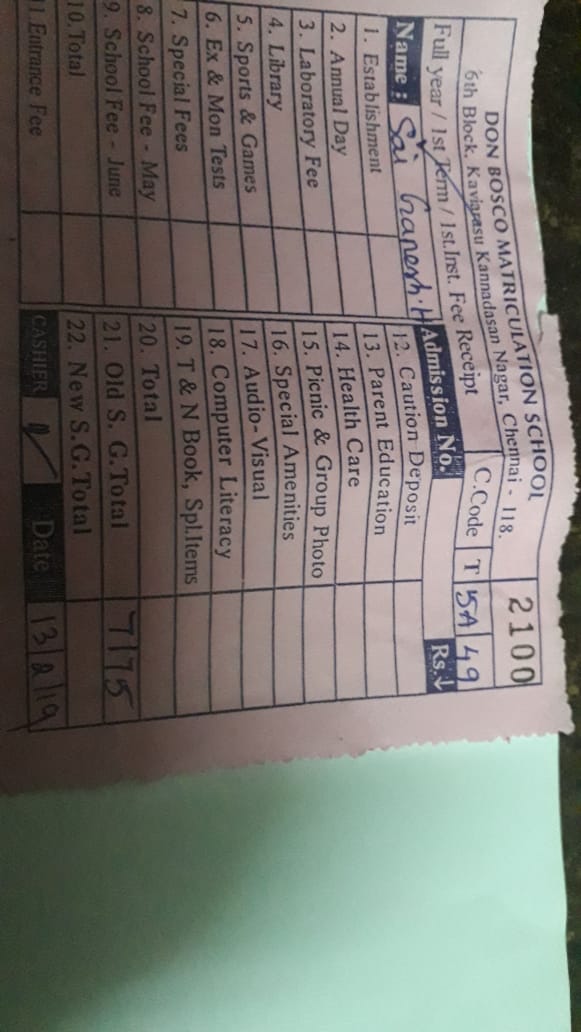 DON BOSCO MATRICULATION SCHOOL
6th Block, Kaviarasu Kannadasan Nagar, Chennai - 118.
2100
Full year / 1st Term / 1st.Inst. Fee Receipt
C.Code T 5A 49
Name : Sai Ganesh.H
Admission No.
Rs.↓
1. Establishment
2. Annual Day
3. Laboratory Fee
4. Library
5. Sports & Games
6. Ex & Mon Tests
7. Special Fees
8. School Fee - May
9. School Fee - June
10. Total
11. Entrance Fee
12. Caution Deposit
13. Parent Education
14. Health Care
15. Picnic & Group Photo
16. Special Amenities
17. Audio-Visual
18. Computer Literacy
19. T & N Book, Spl.Items
20. Total
21. Old S. G.Total 7175
22. New S.G.Total
CASHIER
Date 13/2/19